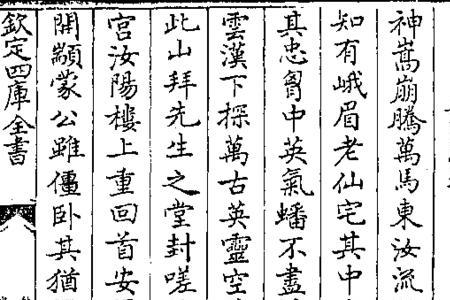 神嵩崩騰萬馬東汝流
知有峨眉老仙宅其中
其忠胷中英氣蟠不盡
雲漢下探萬古英靈空
此山拜先生之堂封嗟
宫汝陽樓上重回首安
開顓蒙公雖僵卧其猶
欽定四庫全書